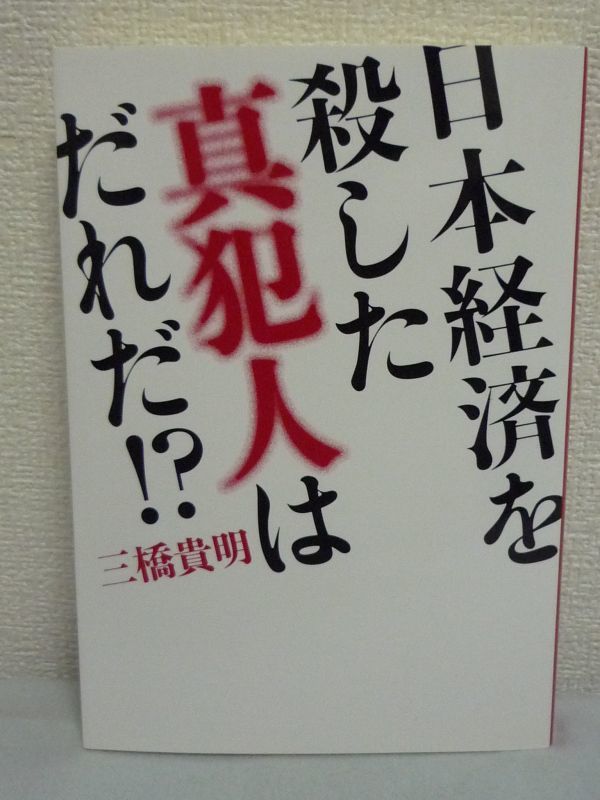 日本経済を
殺した
真犯人は
だれだ!?
三橋貴明